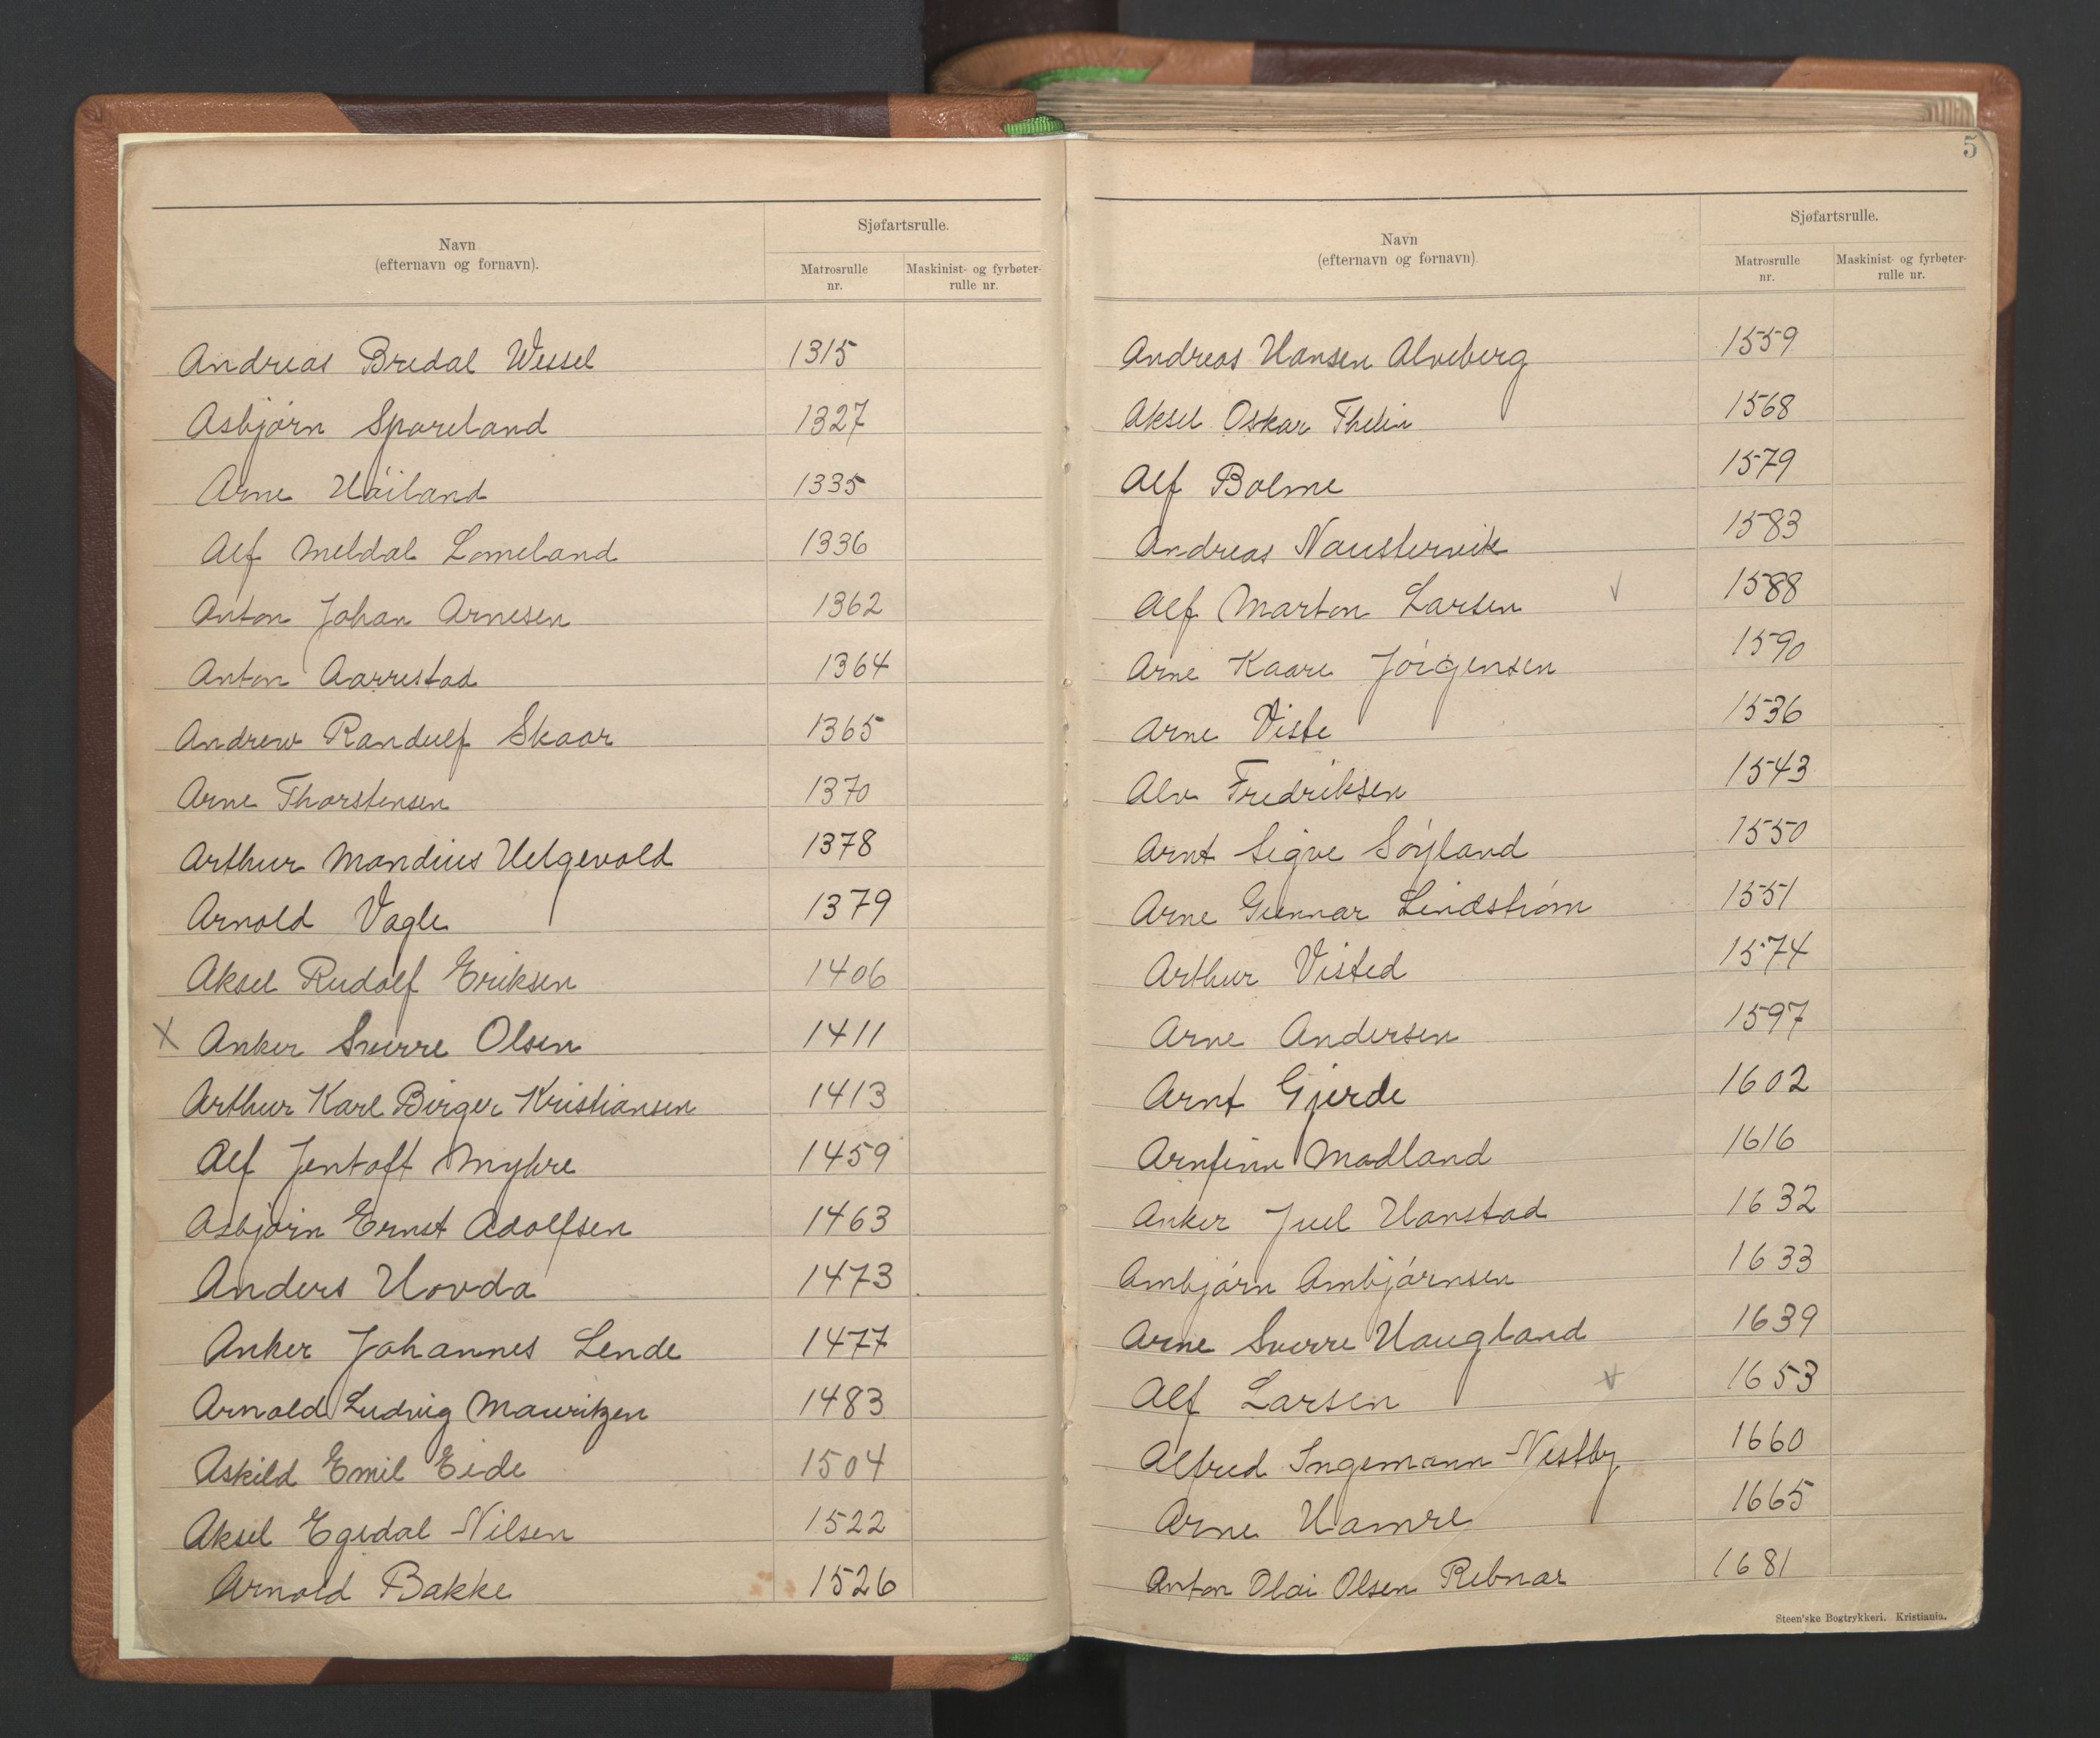 Navn
(efternavn og fornavn).
Sjøfartsrulle.
Matrosrulle
nr.
Maskinist- og fyrbøter-
rulle nr.
Andreas Bredal Wessel 1315
Asbjørn Spareland 1327
Arne Høiland 1335
Alf Meldal Lomeland 1336
Anton Johan Arnesen 1362
Anton Aarrestad 1364
Andrew Randulf Skaar 1365
Arne Thorstensen 1370
Arthur Mandius Helgevold 1378
Arnold Vagle 1379
Aksel Rudolf Eriksen 1406
X Anker Sverre Olsen 1411
Arthur Karl Birger Kristiansen 1413
Alf Jentoft Myhre 1459
Asbjørn Ernst Adolfsen 1463
Anders Hovda 1473
Anker Johannes Lende 1477
Arnold Ludvig Mauritzen 1483
Askild Emil Eide 1504
Aksel Egedal Nilsen 1522
Arnold Bakke 1526
5
Navn
(efternavn og fornavn).
Sjøfartsrulle.
Matrosrulle
nr.
Maskinist- og fyrbøter-
rulle nr.
Andreas Hansen Alveberg 1559
Aksel Oskar Thelin 1568
Alf Bolme 1579
Andreas Naustervik 1583
Alf Marton Larsen √ 1588
Arne Kaare Jørgensen 1590
Arne Viste 1536
Alv Fredriksen 1543
Arnt Sigve Søyland 1550
Arne Gunnar Lindstrøm 1551
Arthur Visted 1574
Arne Andersen 1597
Arnt Gjerde 1602
Arnfinn Madland 1616
Anker Juel Hanstad 1632
Ambjørn Ambjørnsen 1633
Arne Sverre Haugland 1639
Alf Larsen 1653
Alfred Ingemann Nestby 1660
Arne Hamre 1665
Anton Olai Olsen Rebnor 1681
Steen'ske Bogtrykkeri. Kristiania.